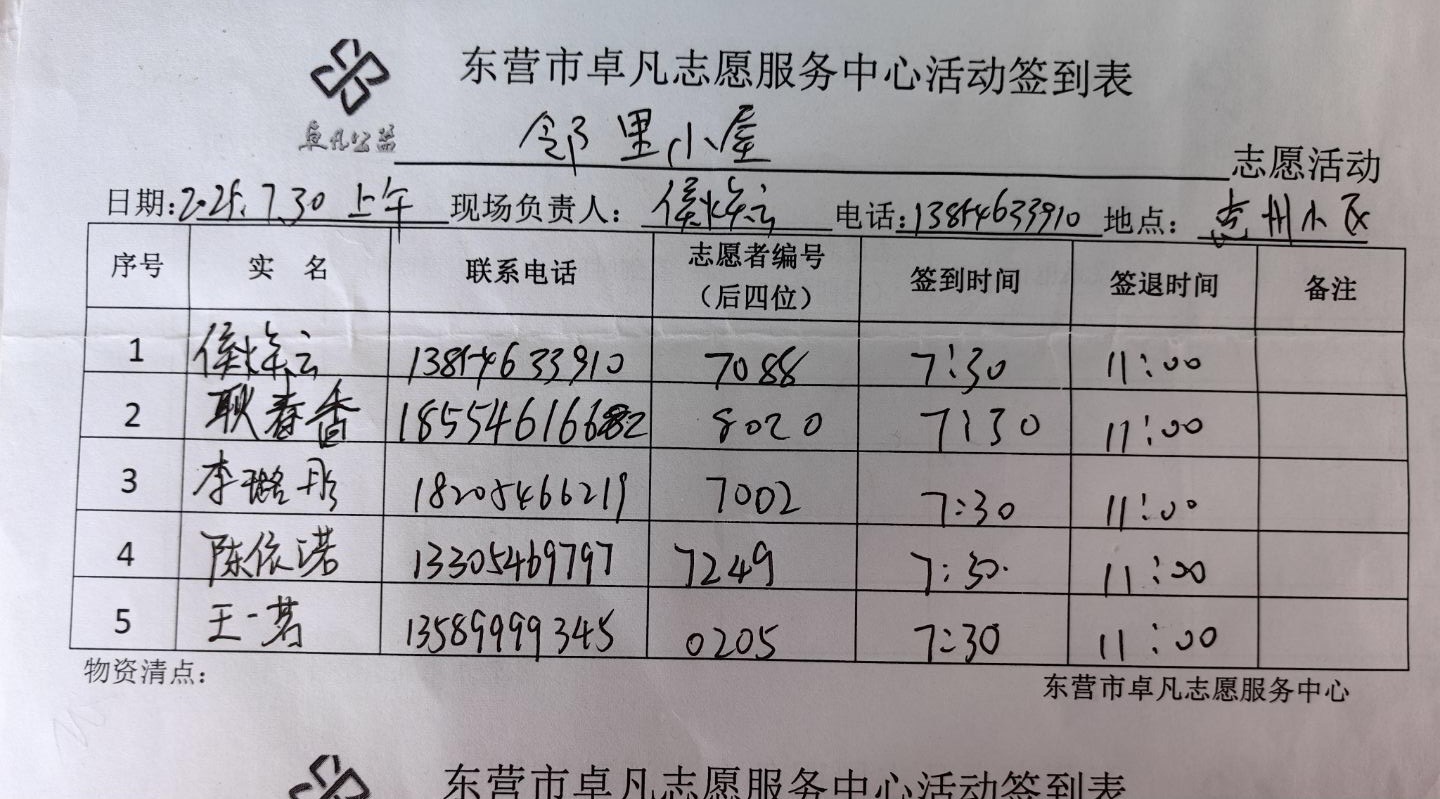 东营市卓凡志愿服务中心活动签到表
卓凡公益
邻里小屋 志愿活动
日期:2025.7.30 上午 现场负责人: 侯焕云 电话:13854633910 地点: 惠州小区
序号 实 名 联系电话 志愿者编号(后四位) 签到时间 签退时间 备注
1 侯焕云 13854633910 7088 7:30 11:00
2 耿春香 8020 7:30 11:00
3 李璐彤 18205466219 7002 7:30 11:00
4 陈依诺 13305469797 7249 7:30 11:00
5 王一茗 13589999345 0205 7:30 11:00
物资清点: 东营市卓凡志愿服务中心
东营市卓凡志愿服务中心活动签到表